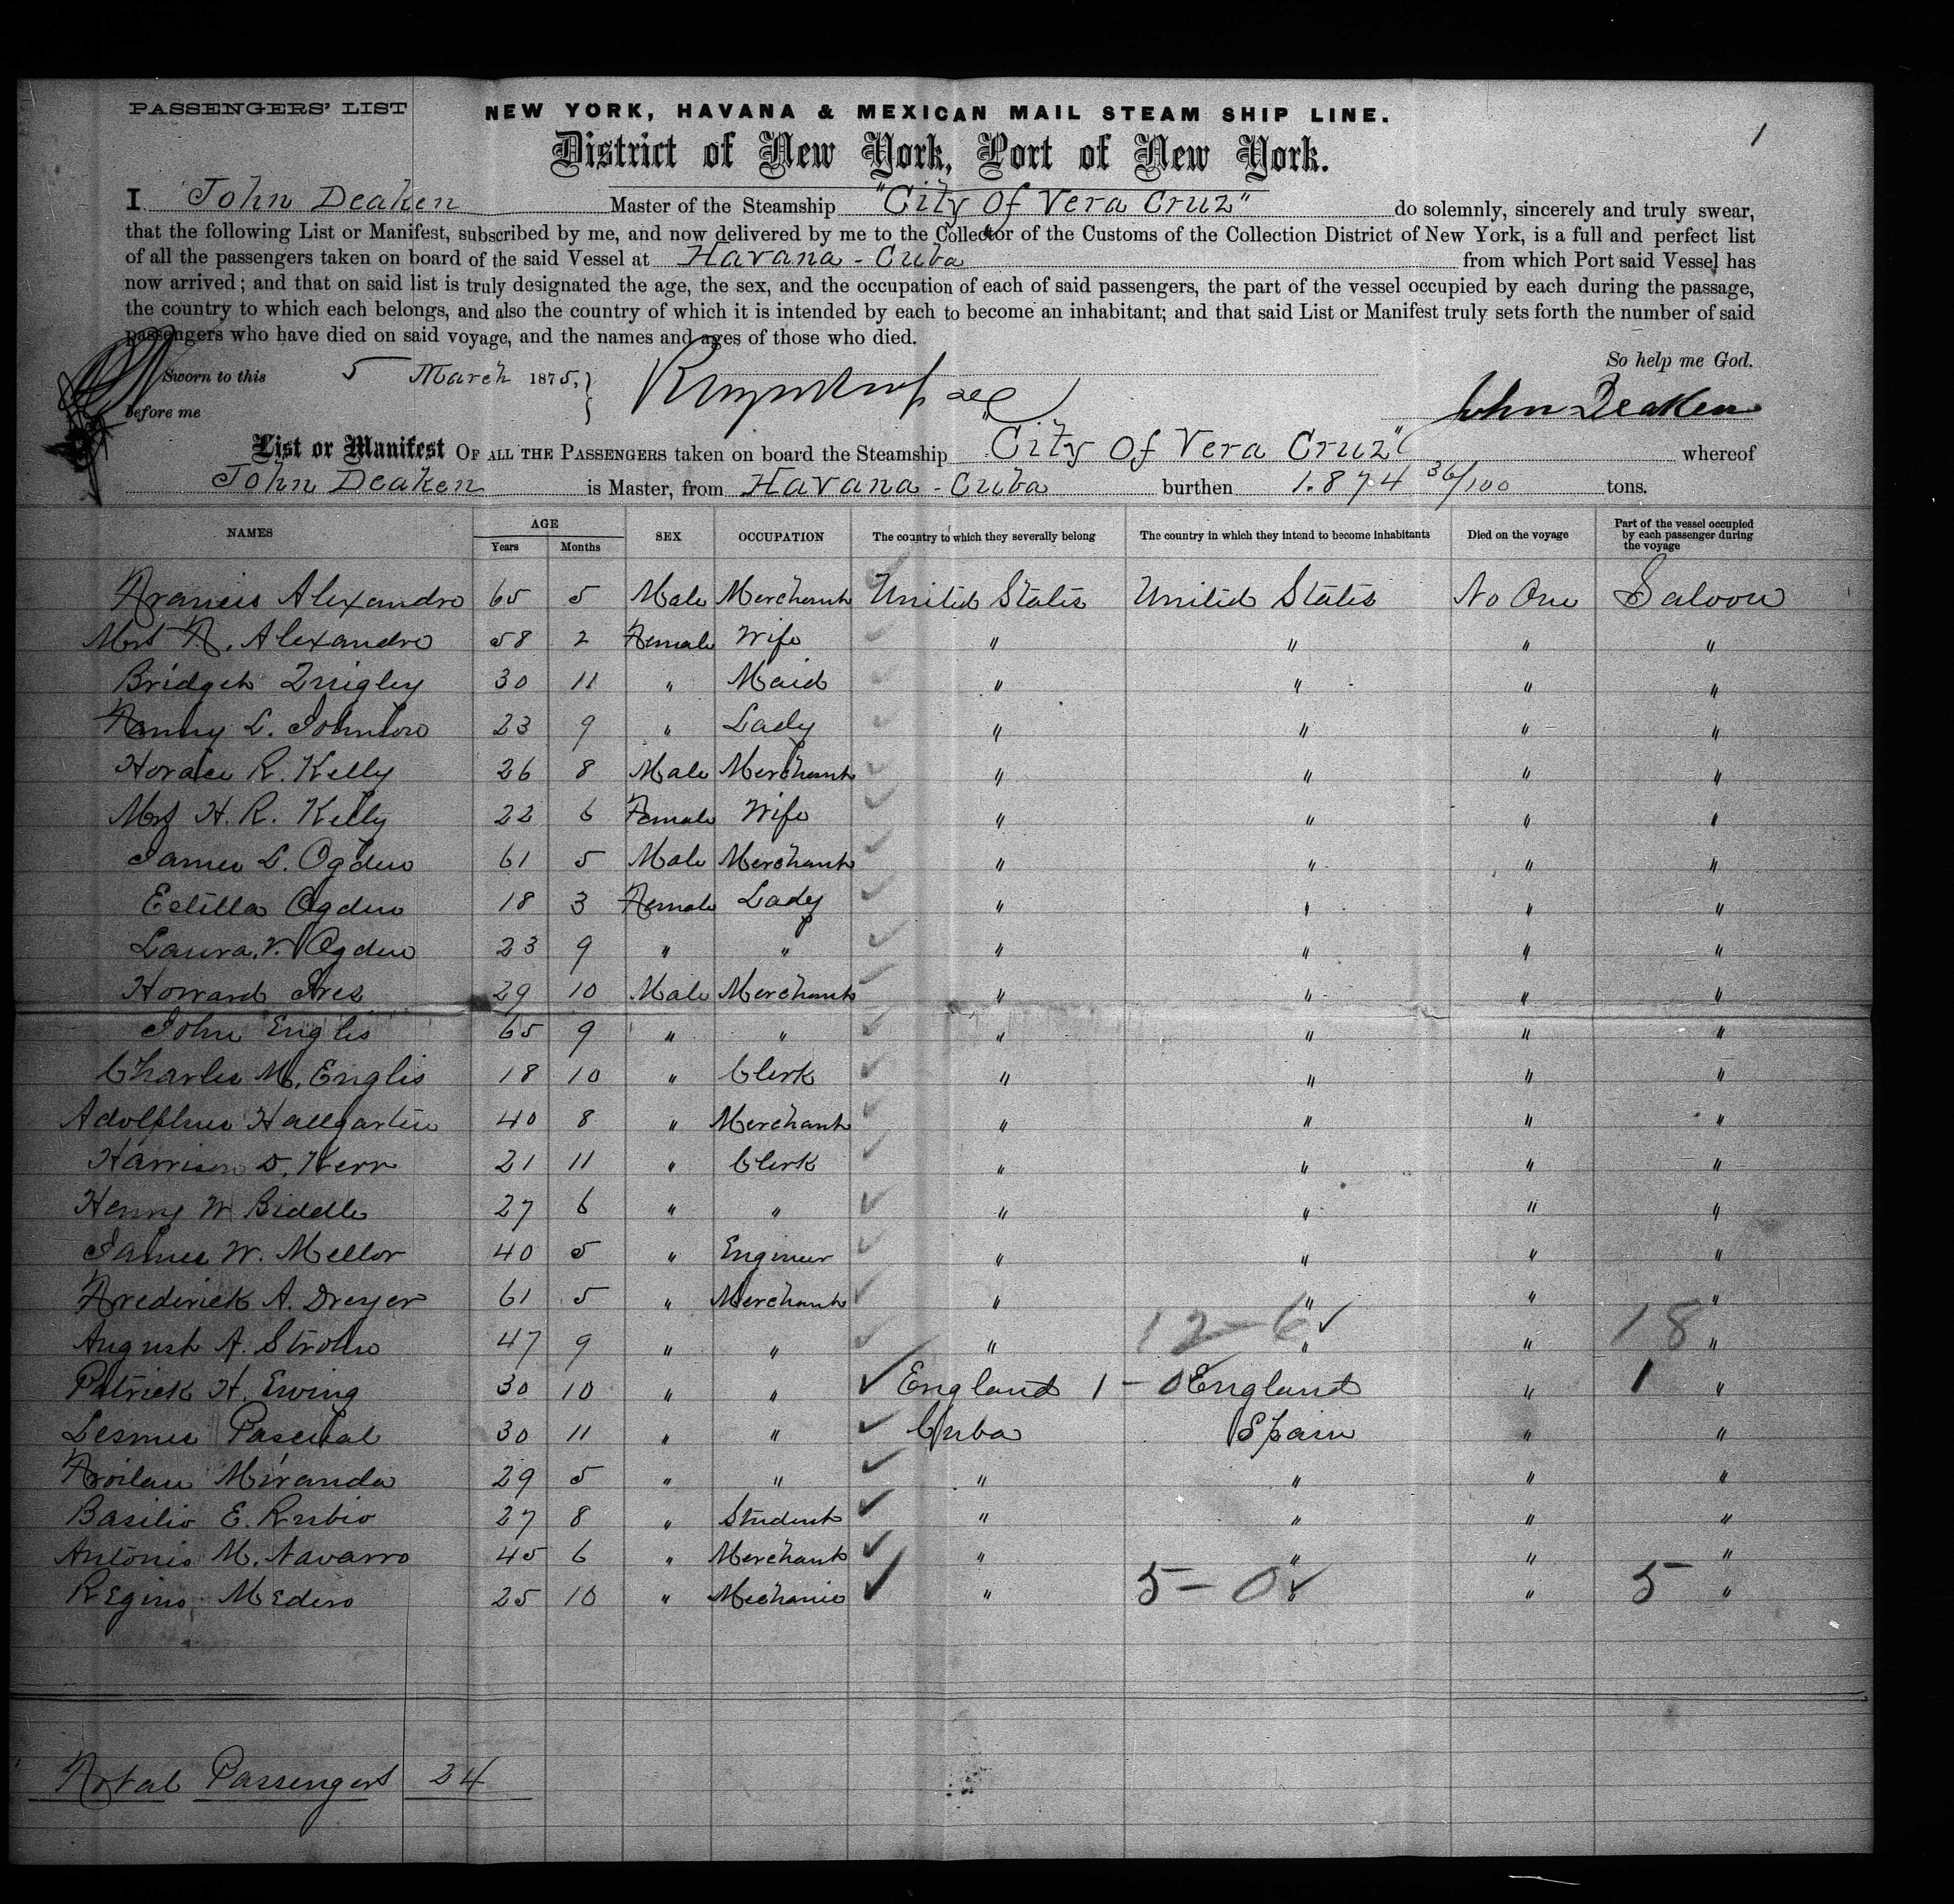 PASSENGERS' LIST
NEW YORK, HAVANA & MEXICAN MAIL STEAM SHIP LINE.
1
District of New York, Port of New York.
I John Deaken Master of the Steamship "City Of Vera Cruz" do solemnly, sincerely and truly swear,
that the following List or Manifest, subscribed by me, and now delivered by me to the Collector of the Customs of the Collection District of New York, is a full and perfect list
of all the passengers taken on board of the said Vessel at Havana - Cuba from which Port said Vessel has
now arrived; and that on said list is truly designated the age, the sex, and the occupation of each of said passengers, the part of the vessel occupied by each during the passage,
the country to which each belongs, and also the country of which it is intended by each to become an inhabitant; and that said List or Manifest truly sets forth the number of said
passengers who have died on said voyage, and the names and ages of those who died.
So help me God.
Sworn to this 5 March 1875,
before me
John Deaken
List or Manifest OF ALL THE PASSENGERS taken on board the Steamship "City Of Vera Cruz" whereof
John Deaken is Master, from Havana - Cuba burthen 1.874 36/100 tons.
NAMES AGE Years Months SEX OCCUPATION The country to which they severally belong The country in which they intend to become inhabitants Died on the voyage Part of the vessel occupied by each passenger during the voyage
Francis Alexandre 65 5 Male Merchant United States United States No One Saloon
Mrs F. Alexandre 58 2 Female Wife " " " "
Bridget Quigley 30 11 " Maid " " " "
Fanny L. 23 9 " Lady " " " "
Horace R. Kelly 26 8 Male Merchant " " " "
Mrs H. R. Kelly 22 6 Female Wife " " " "
James L. Ogden 61 5 Male Merchant " " " "
Estella Ogden 18 3 Female Lady " " " "
Laura V. Ogden 23 9 " " " " " "
Howard Ives 29 10 Male Merchant " " " "
John Englis 65 9 " " " " " "
Charles M. Englis 18 10 " Clerk " " " "
Adolphus Hallgarten 40 8 " Merchant " " " "
Harrison D. Kerr 21 11 " Clerk " " " "
Henry W Biddle 27 6 " " " " " "
James W. Mellor 40 5 " Engineer " " " "
Frederick A. Dreyer 61 5 " Merchant " " " "
August A. 47 9 " " " 12-6 " " 18 "
Patrick H. Ewing 30 10 " " England 1-0 England " 1 "
Lesmes Pascual 30 11 " " Cuba Spain " "
Froilan Miranda 29 5 " " " " " "
Basilio E. Rubio 27 8 " Student " " " "
Antonio M. Navarro 45 6 " Merchant " " " "
Regino Medero 25 10 " Mechanic " 5-0 " 5 "
Total Passengers 24